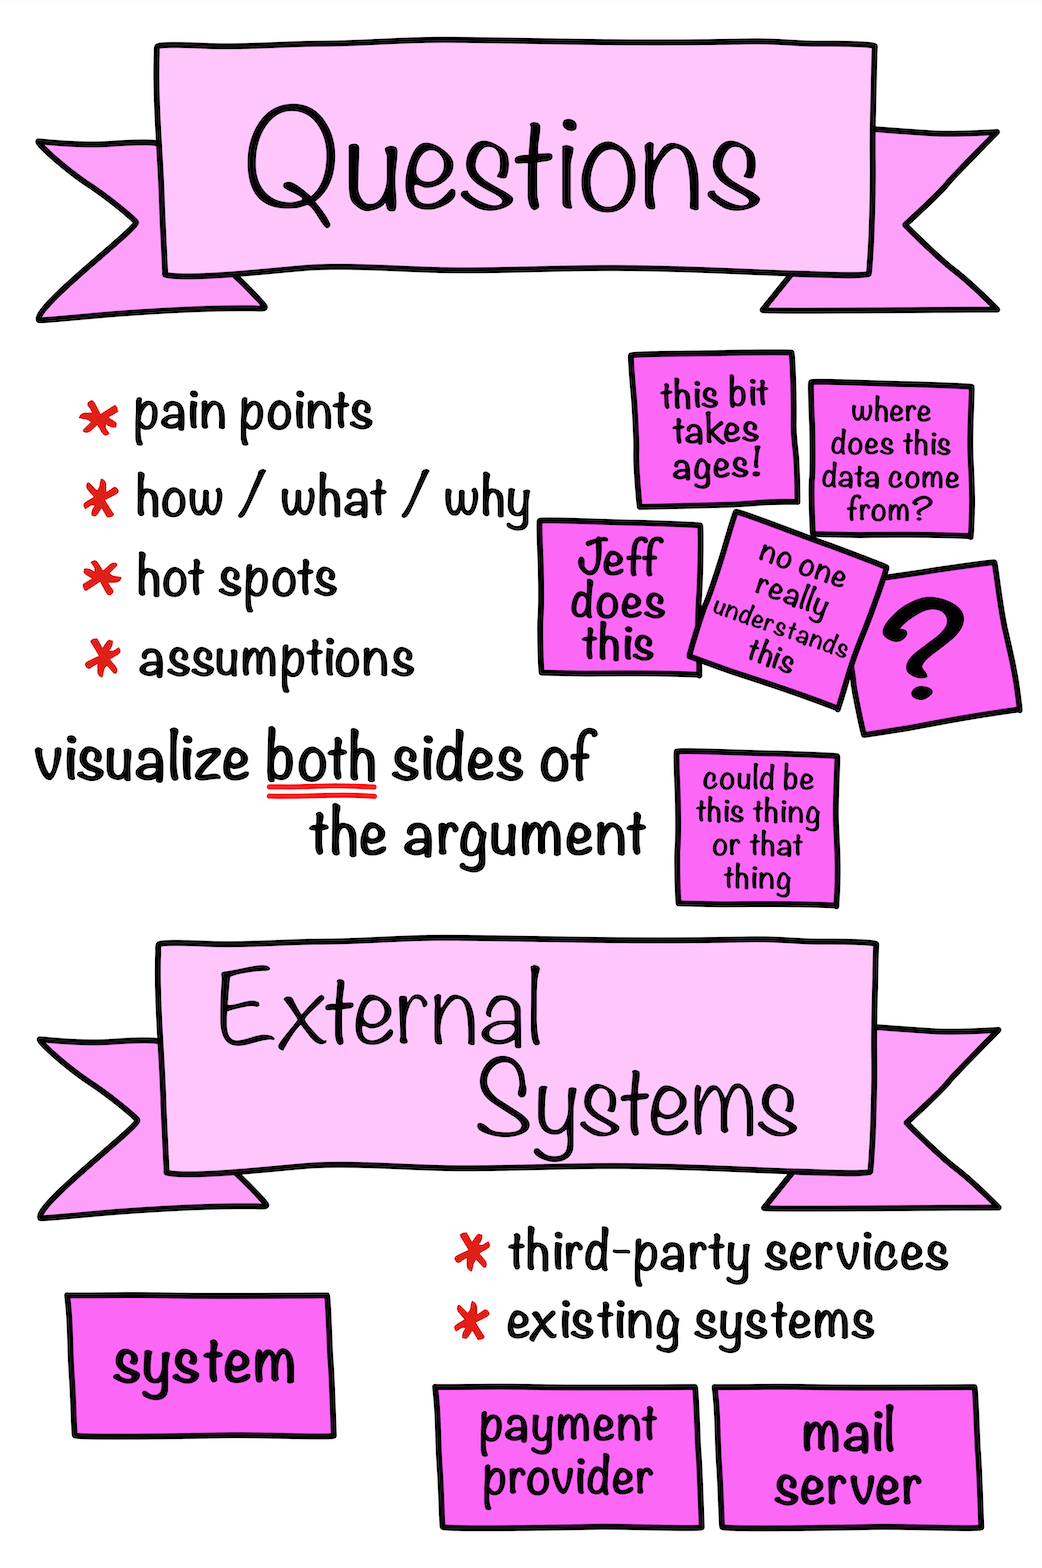 Questions
* pain points
* how / what / why
* hot spots
* assumptions
this bit
takes
ages!
where
does this
data come
from?
Jeff
does
this
no one
really
understands
this
?
visualize both sides of
the argument
could be
this thing
or that
thing
External
Systems
* third-party services
* existing systems
system
payment
provider
mail
server